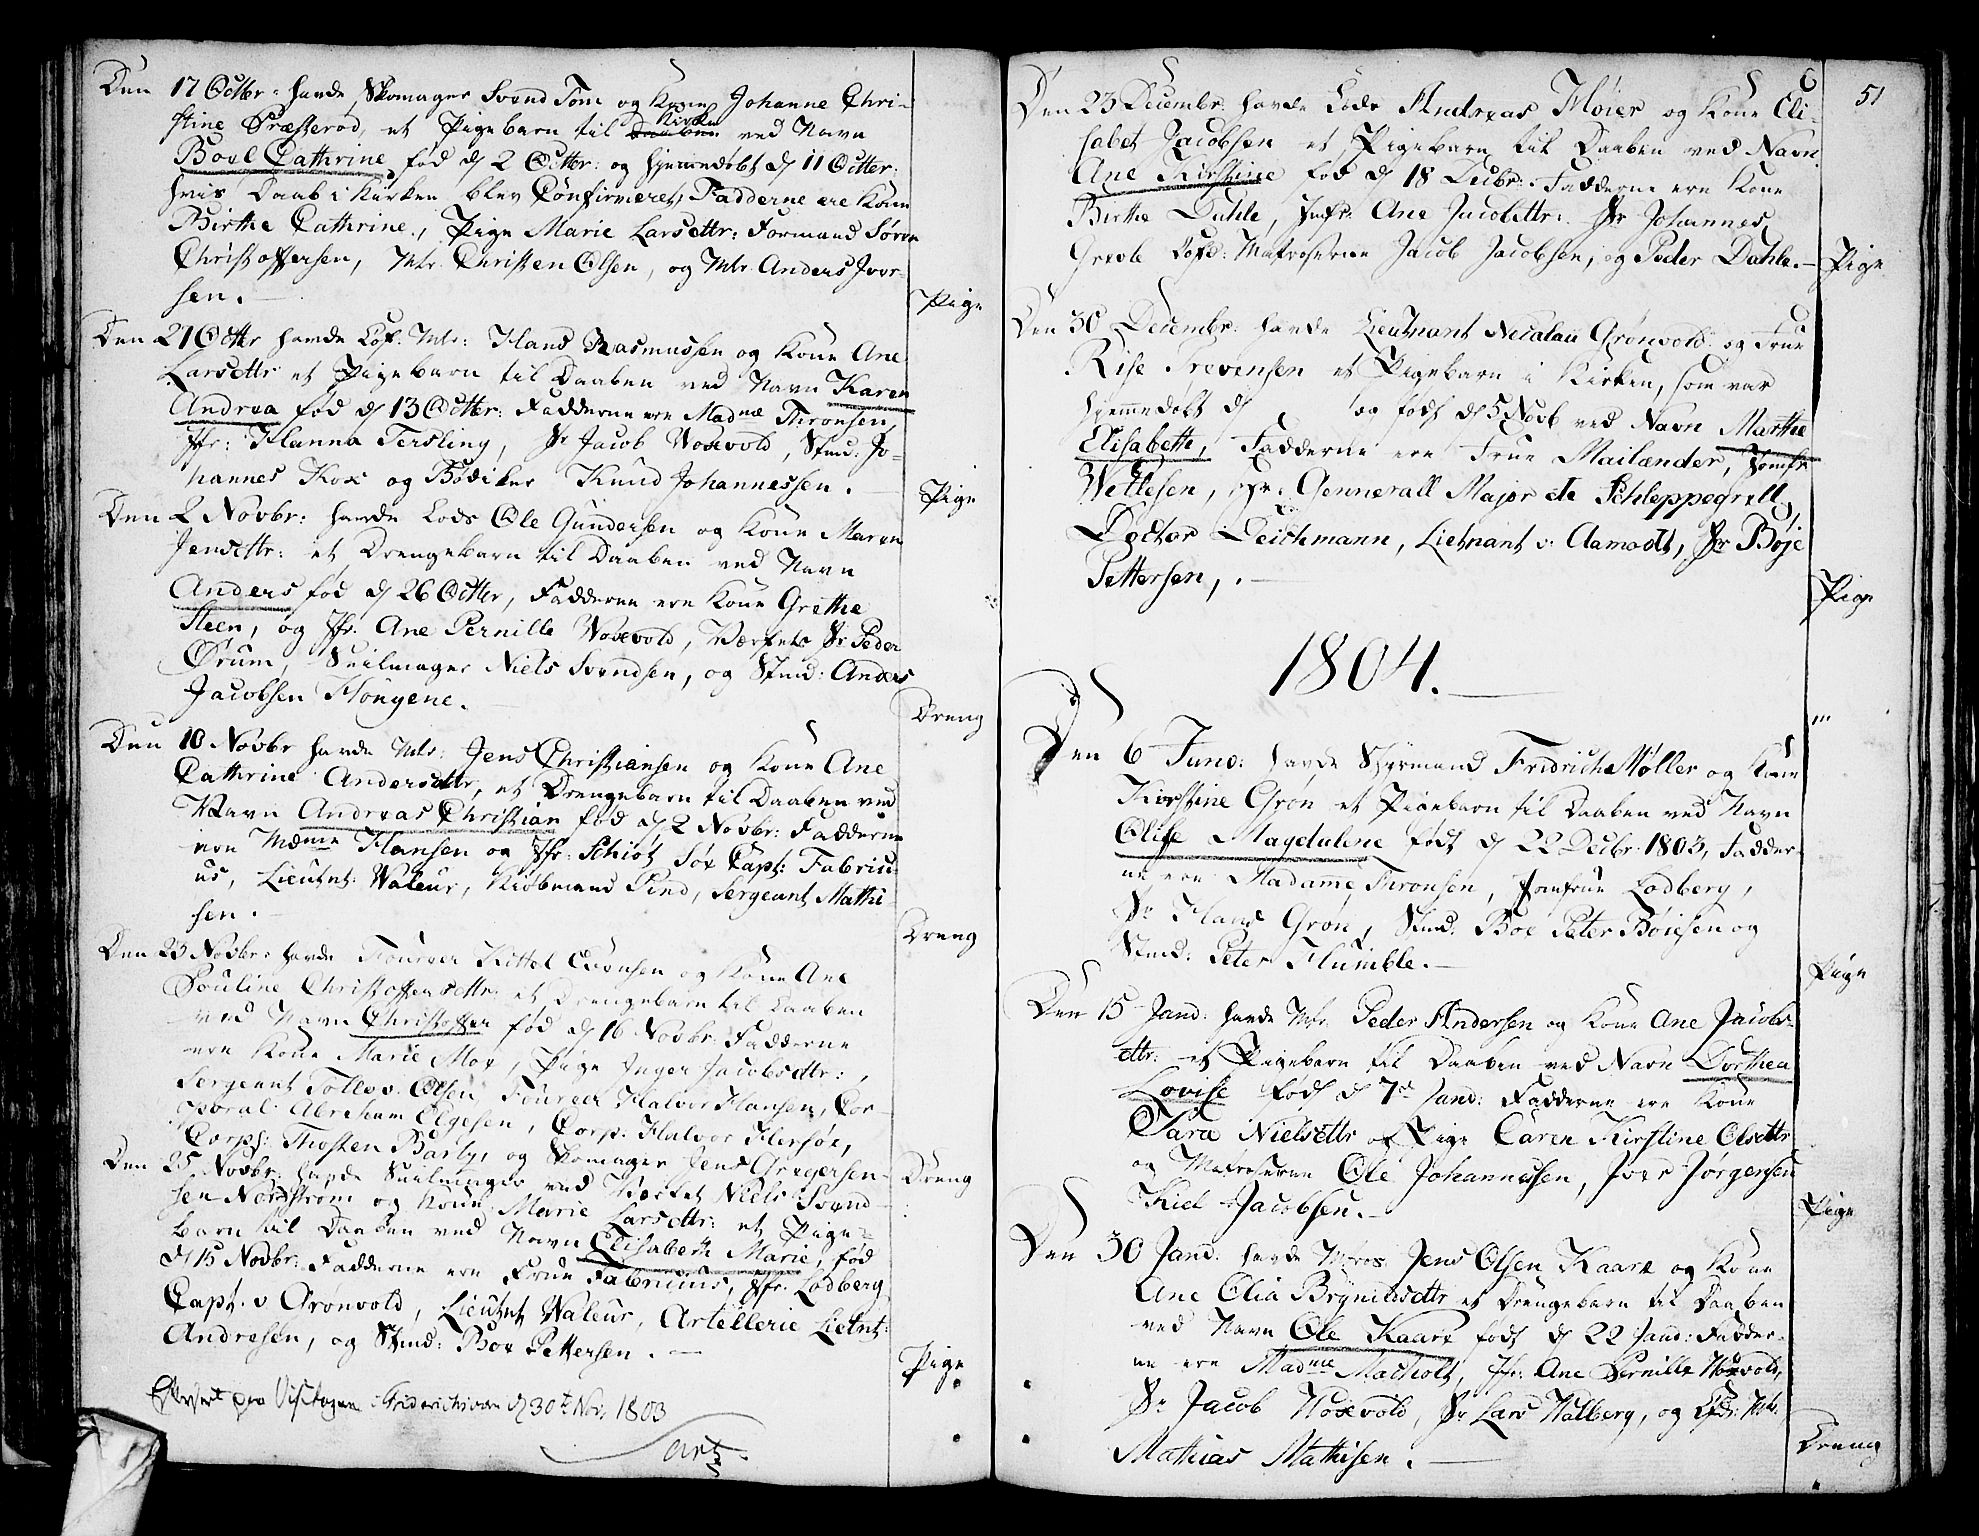 Den 17 Octbr: havde Skomager Svend Tom og Kone Johanne Chri-
stine Præsterød, et Pigebarn til Kirke ved Navn
Boel Cathrine fød d 2 Octbr: og hjemmedøbt d 11 Octbr:
hvis Daab i Kirken blev Confirmeret, Fadderne ere Kone
Birthe Cathrine, Pige Marie Larsdttr: Formand Sören
Christoffersen, Mtr. Christen Olsen, og Mtr. Anders Iver-
sen.
Pige
Den 21 Octbr havde Lof. Mtr: Hans Rasmussen og Kone Ane
Larsdttr et Pigebarn til Daaben ved Navn Karen
Andrea fød d 13 Octbr: Fadderne ere Madme Thronsen,
Jfr: Hanna Tersling, Hr Jacob Woxvold, Stmd: Jo-
hannes Kox og Bødiker Knud Johannessen.
Pige
Den 2 Novbr: havde Lods Ole Gundersen og Kone Maren
Jensdttr: et Drengebarn til Daaben ved Navn
Anders fød d 26 Octbr, Fadderne ere Kone Grethe
Steen, og Jfr. Ane Pernille Woxvold, Værfets Hr Peder
Ørum, Seilmager Niels Svendsen, og Stmd: Anders
Jacobsen Hougene.
Dreng
Den 10 Novbr havde Mtr: Jens Christiansen og Kone Ane
Cathrine Andersdttr, et Drengebarn til Daaben ved
Navn Andreas Christian fød d 2 Novbr: Fadderne
ere Mdme Hansen og Jfr: Schiøt Søe Capt: Fabrici-
us, Lieutnt: Waleur, Kiøbmand Pind, Sergeant Mathi-
sen.
Dreng
Den 23 Novbr: havde Foureer Kittel Evensen og Kone Ane
Pouline Christoffersdttr: et Drengebarn til Daaben
ved Navn Christoffer fød d 16 Novbr: Fadderne
ere Kone Marie Moe, Pige Inger Jacobsdttr:,
Sergeant Tollev Olsen, Foureer Halvor Hansen, Cor-
poral Abraham Elgesen, Corp: Halvor Hersøe,
Corps: Thosten Barly, og Skomager Jens Gregersen
Dreng
Den 25 Novbr: havde Seilmager ved Værket Niels Svend-
sen Nordstrøm og Kone Marie Larsdttr: et Pige-
barn til Daaben ved Navn Elisabeth Marie, fød
d 15 Novbr: Fadderne ere Frue Fabricius, Jfr. Lodberg
Capt. v Grønvold, Lieutnt Waleur, Artellerie Lietnt:
Andresen, og Stmd: Boe Pettersen.
Pige
Visitazen Friderichsværn d 30te Nov. 1803
51
Den 23 Decembr: havde Lods Andreas Høier og Kone Eli-
sabet Jacobsen et Pigebarn til Daaben ved Navn
Ane Kirstine fød d 18 Decbr: Fadderne ere Kone
Birthe Dahle, Jmfr: Ane Jacobsdttr. Hr Johannes
Greve Matroserne Jacob Jacobsen, og Peder Dahle.
Pige
Den 30 Decembr: havde Lieutnant Nicolau Grønvold og Frue
Rise Prevensen et Pigebarn i Kirken, som var
hjemmedøbt d og født d 5 Novb ved Navn Marthe
Elisabethe, Fadderne ere Frue Mailænder, Jomfr
Wetlesen, Hr: Gennerall Major de Schleppegrell,
Doctor Deichmann, Lietnant v: Aamodt, Hr Böje
Pettersen,.
Pige
1804.
Den 6 Janu: havde Styrmand Fridrich Møller og Kone
Kirstine Grøn et Pigebarn til Daaben ved Navn
Olise Magdalene født d 22 Decbr 1803, Fadder-
ne ere Madame Thronsen, Jomfrue Lodberg,
Hr Hans Grøn, Stmd: Boe Peter Böiesen og
Stmd: Peter Humble.
Pige
Den 15 Janu: havde Mtr. Peder Andersen og Kone Ane Jacobs-
dttr: et Pigebarn til Daaben ved Navn Dorthea
Lovise født d 7de Janu: Fadderne ere Kone
Sara Nielsdttr og Pige Caren Kirstine Olsdttr
og Matroserne Ole Johannessen, Iver Jørgensen
Kiel Jacobsen.
Pige
Den 30 Janu: havde Mtros: Jens Olsen Kaare og Kone
Ane Olia Brynildsdttr et Drengebarn til Daaben
ved Navn Ole Kaare født d 22 Janu: Fadder-
ne ere Madme Macholt, Jfr: Ane Pernille Woxvold,
Hr Jacob Woxvold, Hr Lars Walberg, og
Mathias Mathisen.
Dreng